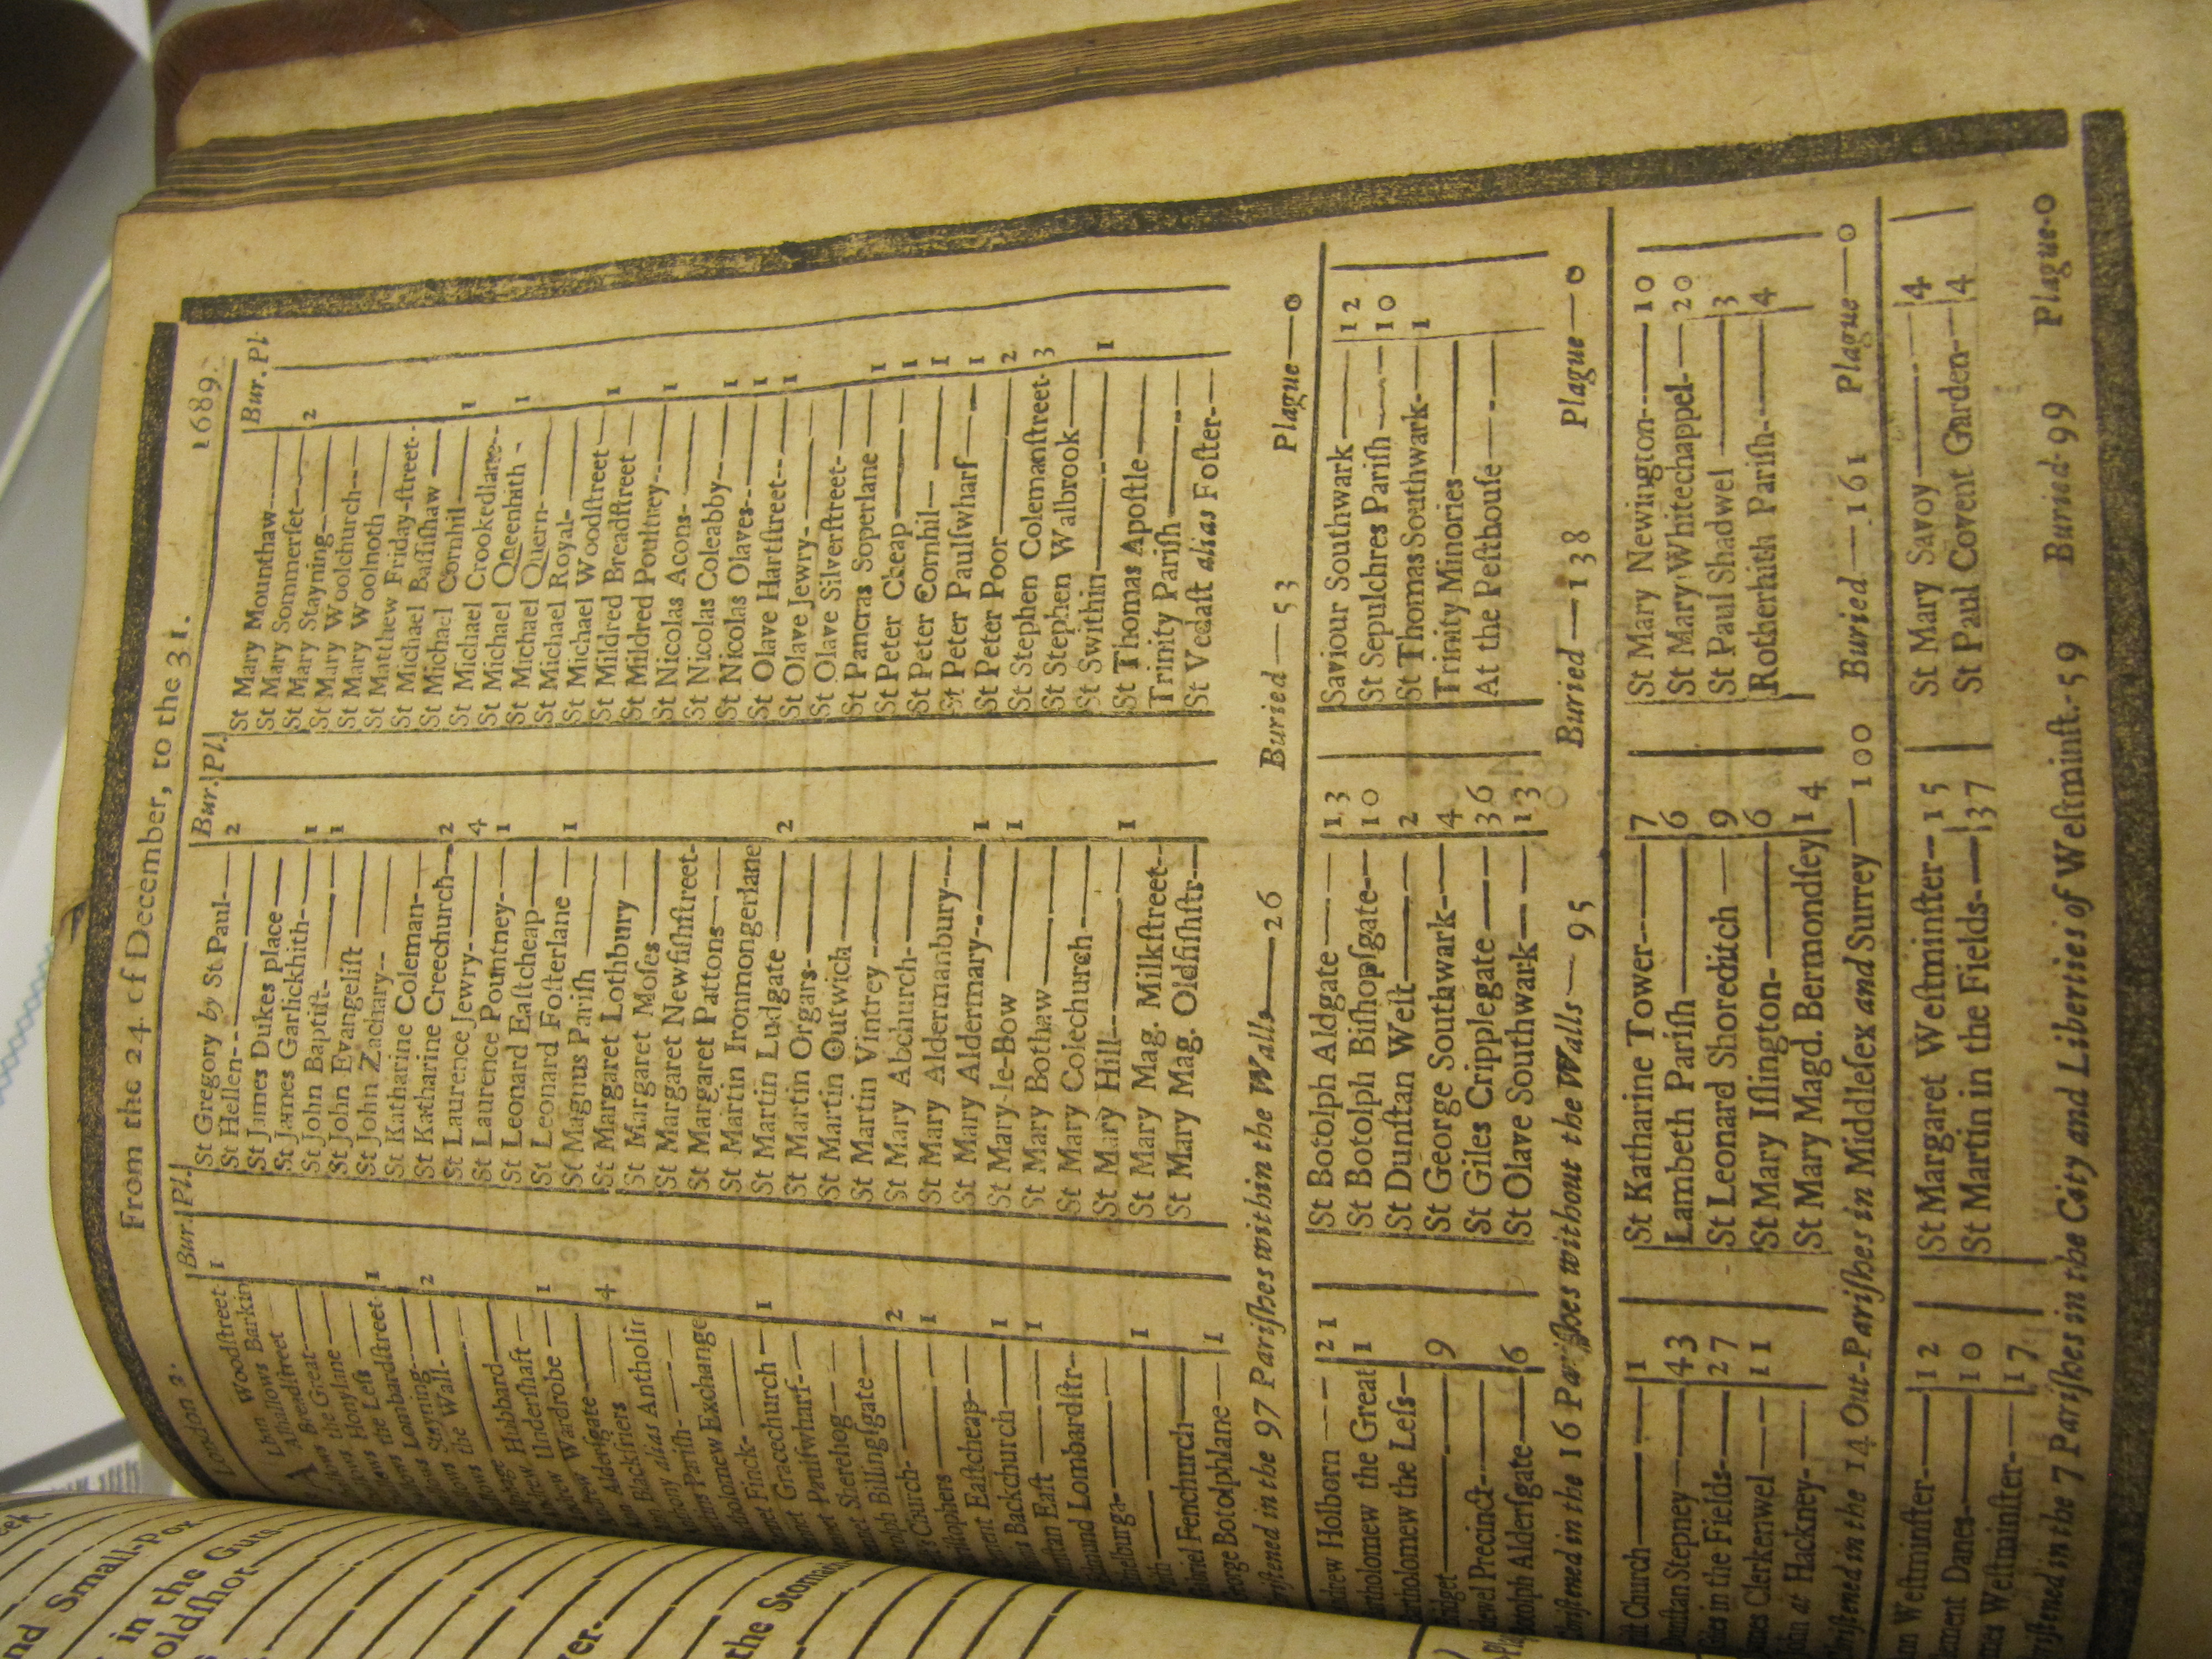 London 2. From the 24. of December, to the 31. 1689.
Bur. Pl.
Woodſtreet 1
Allhallows Barkin
Breadſtreet
the Great
Honylane
the Leſs 1
Lombardſtreet
Stayning 2
the Wall
Hubbard
Underſhaft
Wardrobe 1
Alderſgate
Blackfriers 4
alias Antholin
Pariſh
Exchange
Finck
Gracechurch 1
Paulſwharf
Sherehog
Billingſgate
Church 2
1
Eaſtcheap
Backchurch 1
Eaſt 1
Lombardſtr
1
Fenchurch
George Botolphlane 1
Bur. Pl.
St Gregory by St Paul 2
St Hellen
St James Dukes place
St James Garlickhith 1
St John Baptiſt 1
St John Evangeliſt
St John Zachary
St Katharine Coleman
St Katharine Creechurch 2
St Laurence Jewry 4
St Laurence Pountney 1
St Leonard Eaſtcheap
St Leonard Foſterlane 1
St Magnus Pariſh
St Margaret Lothbury
St Margaret Moſes
St Margaret Newfiſhſtreet
St Margaret Pattons
St Martin Ironmongerlane
St Martin Ludgate 2
St Martin Orgars
St Martin Outwich
St Martin Vintrey
St Mary Abchurch
St Mary Aldermanbury
St Mary Aldermary 1
St Mary-le-Bow 1
St Mary Bothaw
St Mary Colechurch
St Mary Hill 1
St Mary Mag. Milkſtreet
St Mary Mag. Oldfiſhſtr
Bur. Pl
St Mary Mounthaw
St Mary Sommerſet 2
St Mary Stayning
St Mary Woolchurch
St Mary Woolnoth
St Matthew Friday-ſtreet
St Michael Baſſiſhaw
St Michael Cornhill 1
St Michael Crookedlane
St Michael Queenhith 1
St Michael Quern
St Michael Royal
St Michael Woodſtreet 1
St Mildred Breadſtreet
St Mildred Poultney 1
St Nicolas Acons
St Nicolas Coleabby 1
St Nicolas Olaves 1
St Olave Hartſtreet 1
St Olave Jewry
St Olave Silverſtreet
St Pancras Soperlane 1
St Peter Cheap 1
St Peter Cornhil 1
St Peter Paulſwharf 1
St Peter Poor 2
St Stephen Colemanſtreet 3
St Stephen Walbrook
St Swithin 1
St Thomas Apoſtle
Trinity Pariſh
St Vedaſt alias Foſter
in the 97 Pariſhes within the Walls—26 Buried—53 Plague—0
Holborn 21
the Great 1
the Leſs
9
Precinct
Alderſgate 6
St Botolph Aldgate 13
St Botolph Biſhopſgate 10
St Dunſtan Weſt 2
St George Southwark 4
St Giles Cripplegate 36
St Olave Southwark 13
Saviour Southwark 12
St Sepulchres Pariſh 10
St Thomas Southwark 1
Trinity Minories
At the Peſthouſe
in the 16 Pariſhes without the Walls—95 Buried—138 Plague—0
Church 1
Stepney 43
in the Fields 27
Clerkenwel 11
at Hackney
St Katharine Tower 7
Lambeth Pariſh 6
St Leonard Shoreditch 9
St Mary Iſlington 6
St Mary Magd. Bermondſey 14
St Mary Newington 10
St Mary Whitechappel 20
St Paul Shadwel 3
Rotherhith Pariſh 4
in the 14 Out-Pariſhes in Middleſex and Surrey—100 Buried—161 Plague—0
Weſtminſter 12
Danes 10
Weſtminſter 17
St Margaret Weſtminſter 15
St Martin in the Fields 37
St Mary Savoy 4
St Paul Covent Garden 4
in the 7 Pariſhes in the City and Liberties of Weſtminſt.-59 Buried-99 Plague-0
Small-Pox
in the Guts
the Stomach